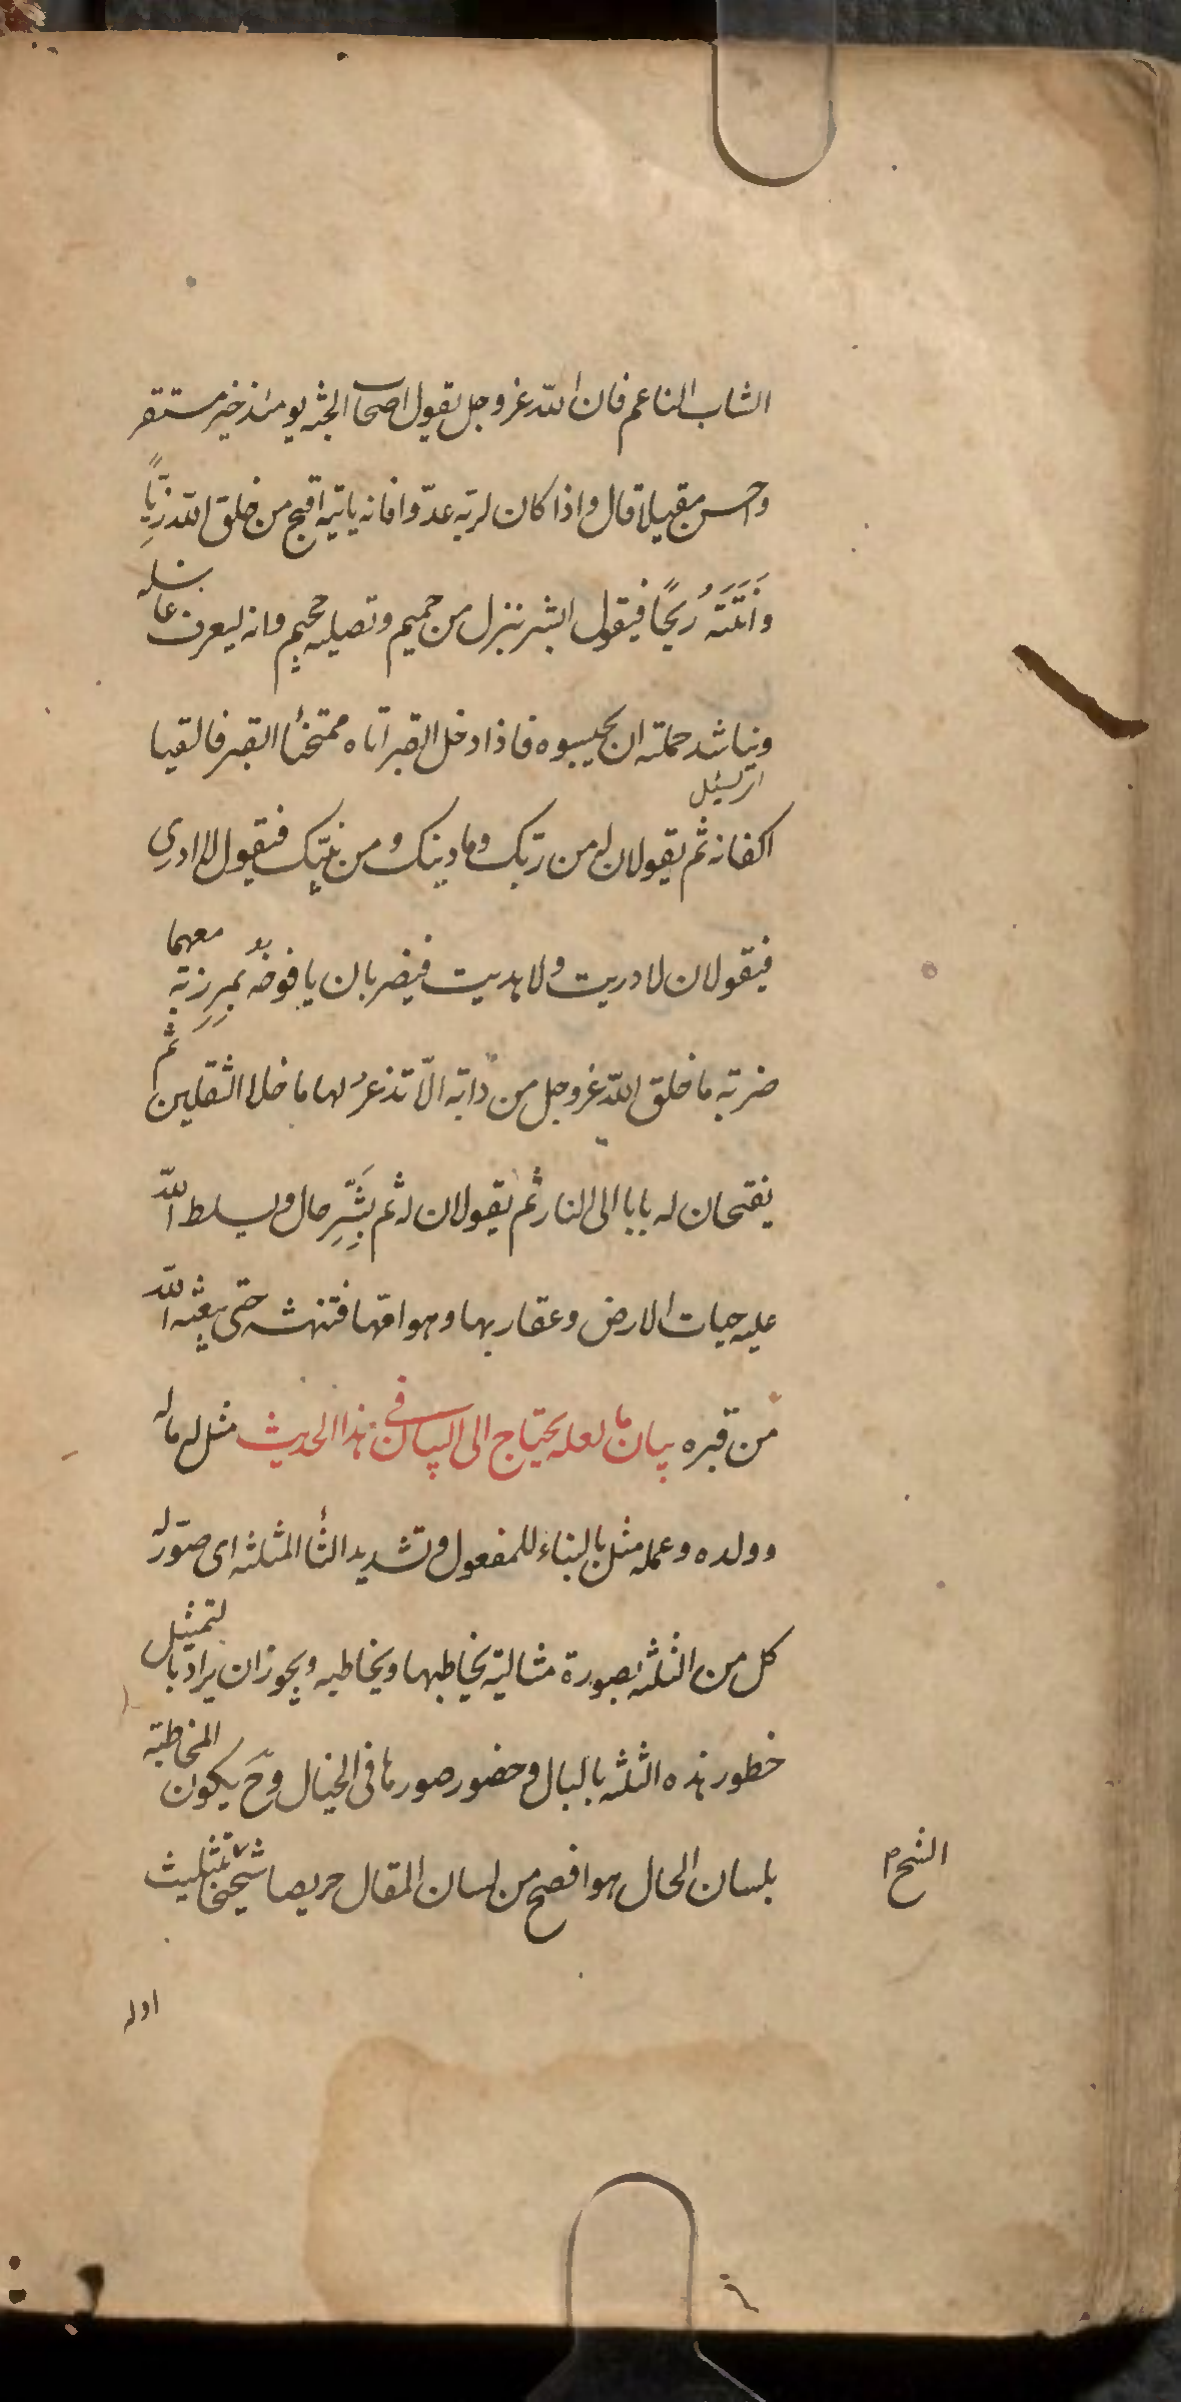 الشاب الناعم فان الله عز وجل يقول اصحاب الجنة يومئذ خير مستقر
واحسن مقيلا قال واذا كان لربه عدوا فانه ياتيه اقبح من خلق الله زيًّا
وَاَنْتَنَهُ رِيحًا فيقول ابشر بنزل من حميم وتصليه جحيم وانه ليعرف غاسله
ويناشد حملته ان يحبسوه فاذا دخل القبر اتاه ممتحنا القبر فالقيا
اكفانه ثم يقولان له من ربك وما دينك ومن نبيك فيقول لا ادري
فيقولان لا دريت ولا هديت فيضربان يافوخه بمرزبة معهما
ضربة ما خلق الله عز وجل من دابة الّا تذعر لها ما خلا الثقلين ثم
يفتحان له بابا الى النار ثم يقولان له نم بِشَرِّ حال ويسلط الله
عليه حيات الارض وعقاربها وهوامّها فتنهشه حتى يبعثه الله
من قبره بيان ما لعله يحتاج الى البيان في هذا الحديث مثل له ماله
وولده وعمله مثل بالبناء للمفعول وتشديد الثا المثلثة اى صوّر له
كل من الثلثة بصورة مثالية يخاطبها ويخاطبه ويجوز ان يراد بالتمثيل
خطور هذه الثلثة بالبال وحضور صورها فى الخيال وح يكون المخاطبة
بلسان الحال هو افصح من لسان المقال حريصا شحيحا بتثليث
الشح م
اوله